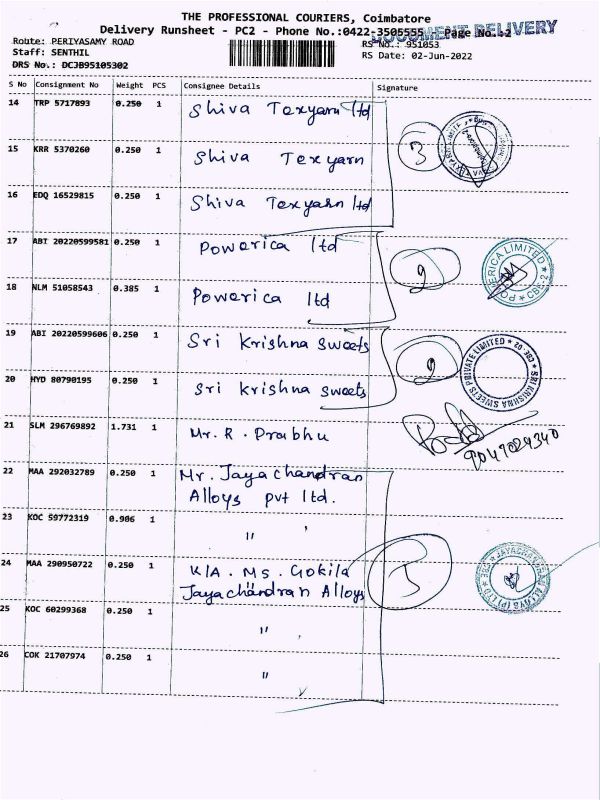 THE PROFESSIONAL COURIERS, Coimbatore
Delivery Runsheet - PC2 - Phone No.:0422-3505555 Page No.:2
DOCUMENT DELIVERY
Route: PERIYASAMY ROAD
RS No.: 951053
Staff: SENTHIL
RS Date: 02-Jun-2022
DRS No.: DCJB95105302
S No Consignment No Weight PCS Consignee Details Signature
14 TRP 5717893 0.250 1 Shiva Texyarn ltd
15 KRR 5370260 0.250 1 Shiva Texyarn 3
16 EDQ 16529815 0.250 1 Shiva Texyarn ltd
17 ABT 20220599581 0.250 1 Powerica ltd
2 POWERICA LIMITED * CBE-2 *
18 NLM 51058543 0.385 1 Powerica ltd
19 ABI 20220599606 0.250 1 Sri Krishna Sweets
2 * SRI KRISHNA SWEETS PRIVATE LIMITED * CBE - 02
20 HYD 80790195 0.250 1 Sri Krishna Sweets
21 SLM 296769892 1.731 1 Mr. R. Prabhu
9047029340
22 MAA 292032789 0.250 1 Mr. Jayachandran
Alloys pvt ltd.
23 KOC 59772319 0.906 1 "
24 MAA 290950722 0.250 1 K/A. Ms. Gokila
Jayachandran Alloys
JAYACHANDRAN ALLOYS (P) LTD
25 KOC 60299368 0.250 1 "
26 COK 21707974 0.250 1 "